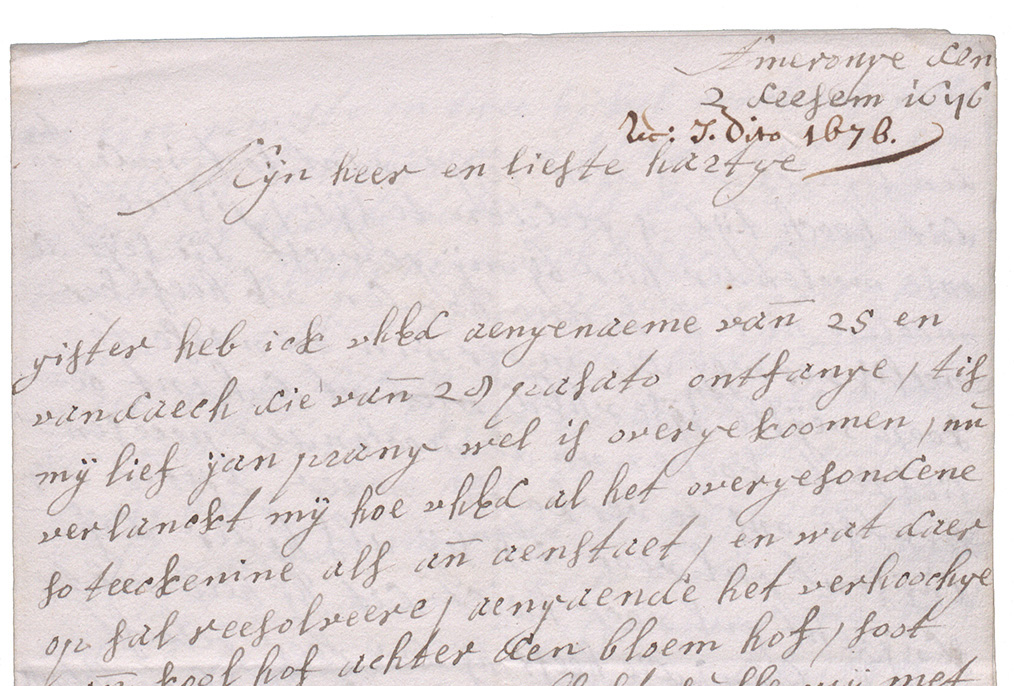 Ameronge den
2 deesem 1676
Rec: 5. Dito 1676.
Mijn heer en liefste hartge
gister heb ick uhEd aengenaeme van 25 en
vandaech die van 28 pasato ontfange / tis
mij lief jan prang wel is overgekoomen / nu
verlanckt mij hoe uhEd al het overgesondene
so teeckenine als an aenstaet / en wat daer
op sal reesolveere / aengaende het verhoochge
kool hof achter den bloem hof / soot
met